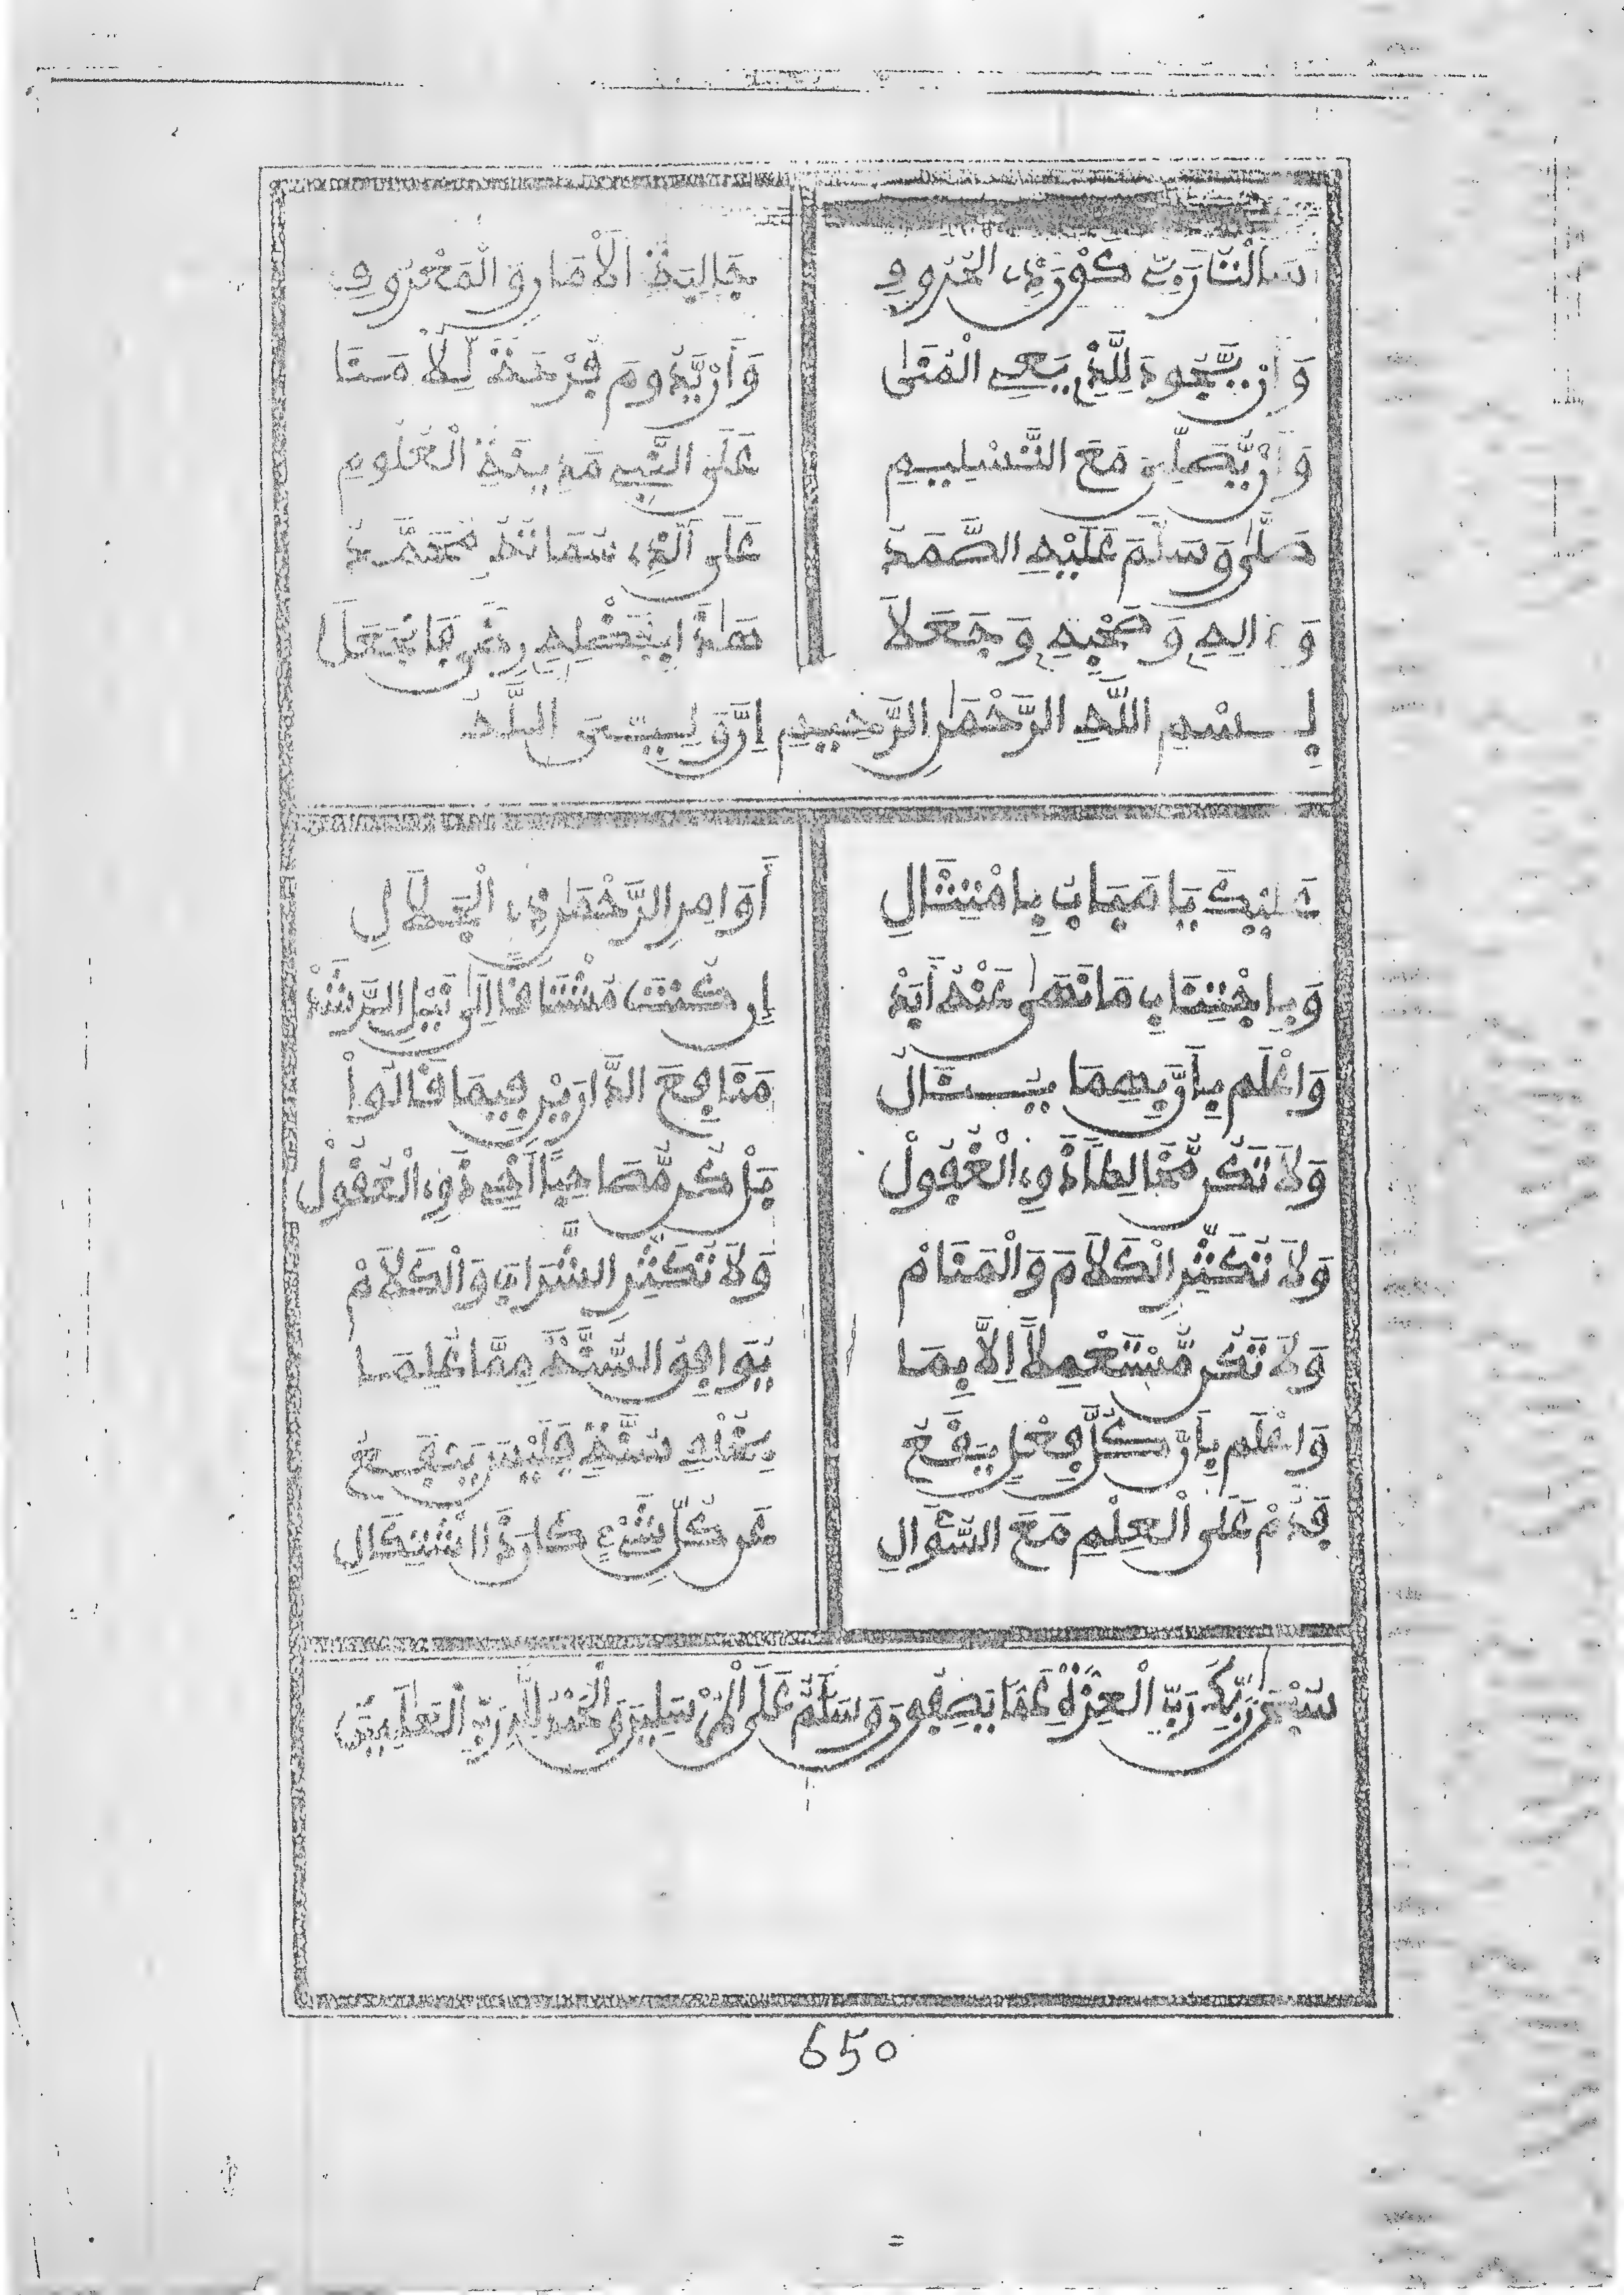 سَأَلْتُ رَبِّي كَوْنَ ذِي الْحُرُوفِ جَالِبَةَ الْأَمَانِ وَالْمَعْرُوفِ
وَأَنْ يَّجُودَ لِلَّذِي يَعِي الْمُنَى وَأَنْ يَّدُومَ
وَأَنْ يُّصَلِّيَ مَعَ التَّسْلِيمِ عَلَى النَّبِي مَدِينَةِ الْعُلُومِ
صَلَّى وَسَلَّمَ عَلَيْهِ الصَّمَدُ عَلَى الَّذِي سَمَا نَدَاهُ مُحَمَّدُ
وَءَالِهِ وَصَحْبِهِ وَجَعَلَا هَذَا بِفَضْلِهِ
بِسْمِ اللَّهِ الرَّحْمَنِ الرَّحِيمِ إِنَّ وَلِيِّيَ اللَّهُ
عَلَيْكَ يَا صَمَبَابُ بِامْتِثَالِ أَوَامِرِ الرَّحْمَنِ ذِي الْجَلَالِ
وَبِاجْتِنَابِ مَا نَهَى عَنْهُ أَبَدْ إِن كُنتَ مُشْتَاقًا إِلَى نَيْلِ الرَّشَدْ
وَاعْلَم بِأَنَّ بِهِمَا يُنَالُ مَنَافِعَ الدَّارَيْنِ فِيمَا قَالُواْ
وَلَا تَكُن مُّخَالِطًا ذَوِي الْغُفُولْ بَلْ كُن مُّصَاحِبًا أَخِي ذَوِي الْعُقُولْ
وَلَا تُكَثِّرِ الْكَلَامَ وَالْمَنَامْ وَلَا تُكَثِّرِ الشَّرَابَ وَالْكَلَامْ
وَلَا تَكُن مُّسْتَعْمِلًا إِلَّا بِمَا يُوَافِقُ السُّنَّةَ مِمَّا عُلِمَا
وَاعْلَم بِأَنَّ كُلَّ فِعْلٍ يَقَعُ بِغَيْرِ سُنَّةٍ فَلَيْسَ يَنفَعُ
فَدُمْ عَلَى الْعِلْمِ مَعَ السُّؤَالِ عَن كُلِّ شَيْءٍ كَانَ ذَا اشْتِكَالِ
سُبْحَنَ رَبِّكَ رَبِّ الْعِزَّةِ عَمَّا يَصِفُونَ وَسَلَمٌ عَلَى الْمُرْسَلِينَ وَالْحَمْدُ لِلَّهِ رَبِّ الْعَلَمِينَ
650